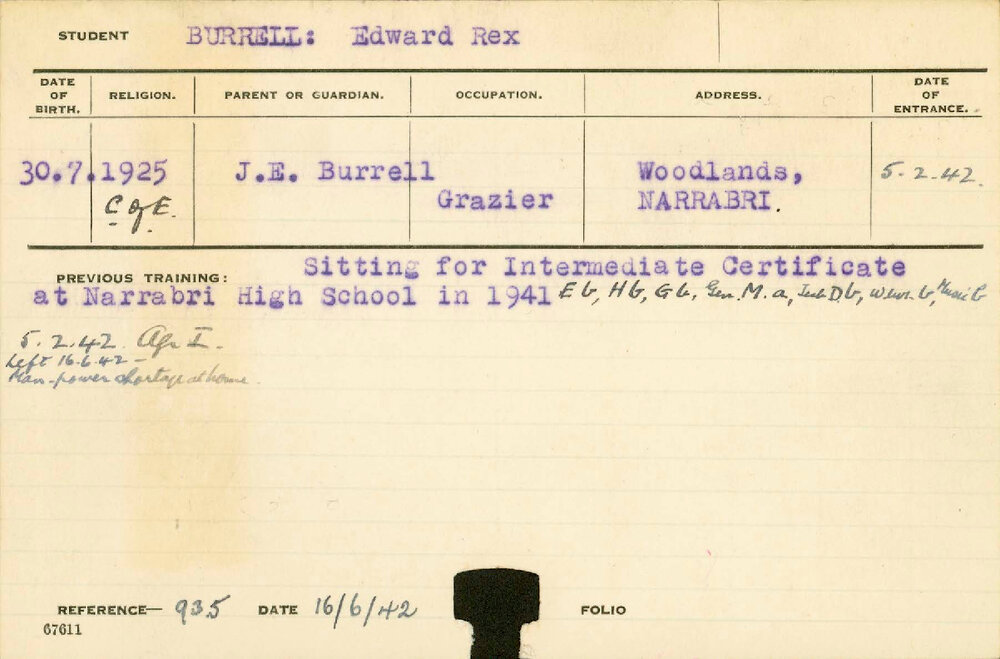 STUDENT BURRELL: Edward Rex
DATE OF BIRTH. RELIGION. PARENT OR GUARDIAN. OCCUPATION. ADDRESS. DATE OF ENTRANCE.
30.7.1925 J.E. Burrell Woodlands, 5-2-42.
C of E. Grazier NARRABRI.
PREVIOUS TRAINING: Sitting for Intermediate Certificate
at Narrabri High School in 1941 E b, H b, G b, Gen. M. a, Tech D b, Music b
5.2.42 Agr I.
Left 16.6.42 -
Man-power shortage at home.
REFERENCE— 935 DATE 16/6/42 FOLIO
67611